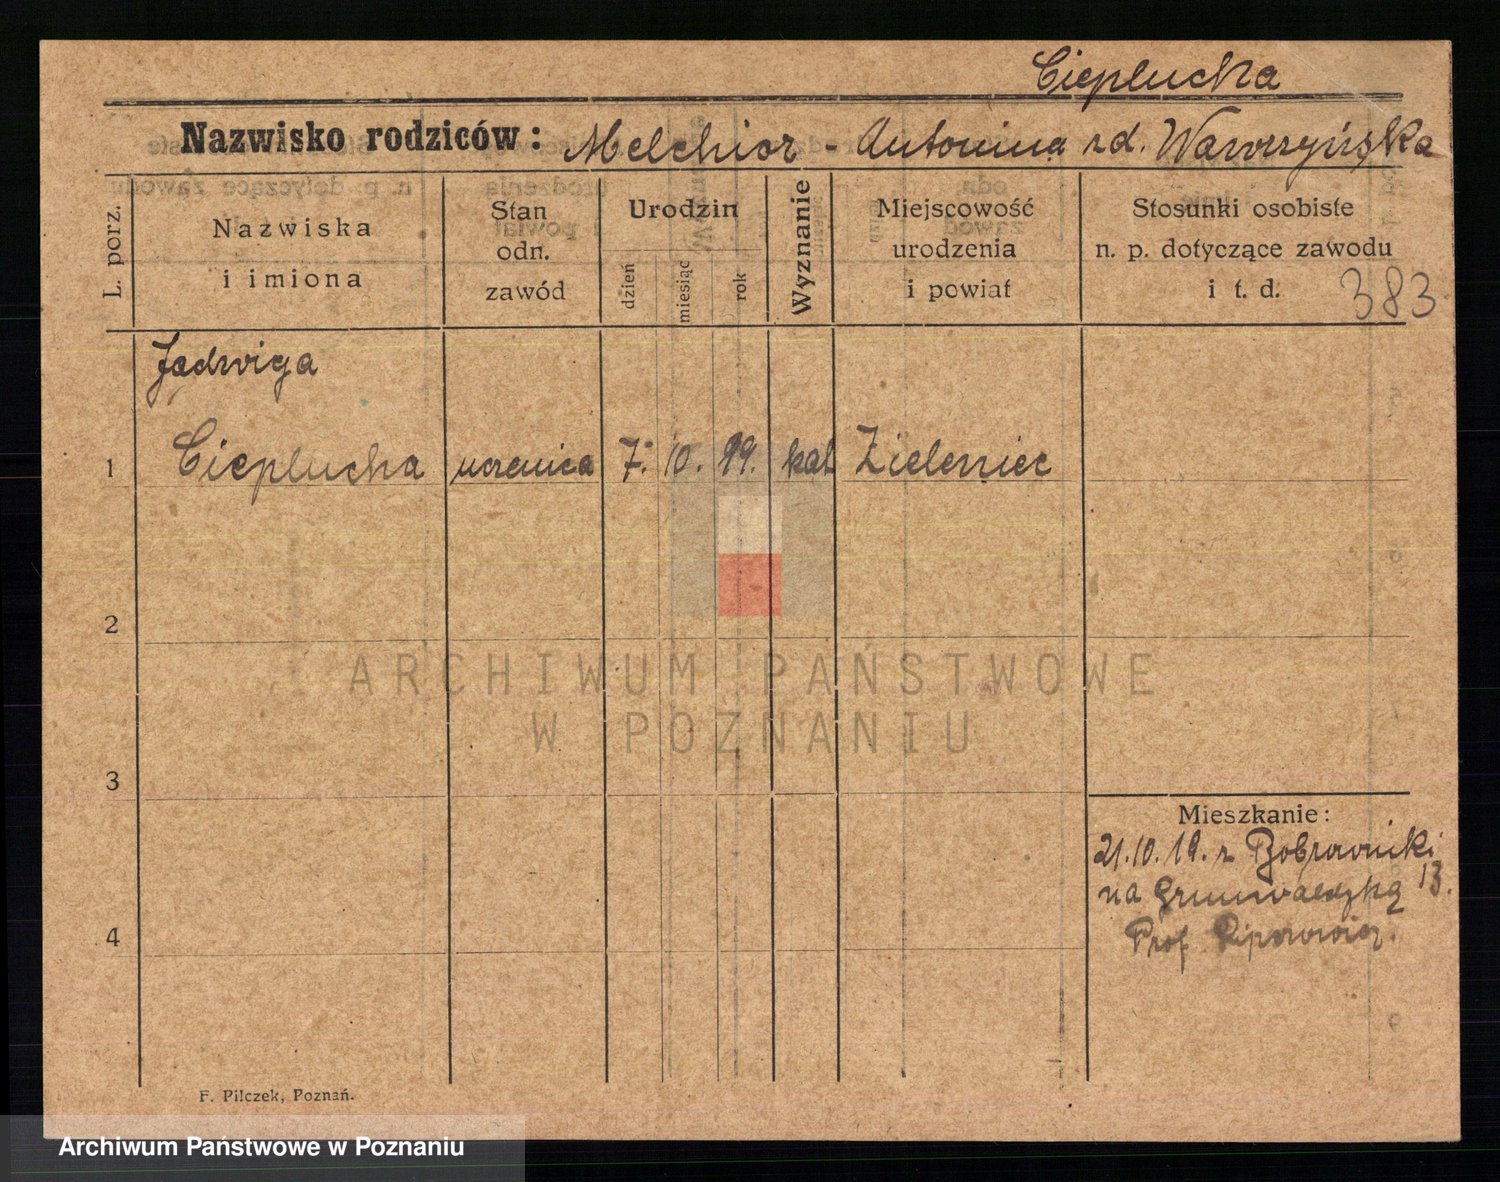 Cieplucha
Nazwisko rodziców: Melchior - Antonina zd. Wawrzyńska
L. porz.
Nazwiska
i imiona
Stan
odn.
zawód
Urodzin
dzień
miesiąc
rok
Wyznanie
Miejscowość
urodzenia
i powiat
Stosunki osobiste
n. p. dotyczące zawodu
i t. d.
383
Jadwiga
1 Cieplucha uczenica 7. 10. 99. kat Zieleniec
2
3
4
ARCHIWUM PAŃSTWOWE
W POZNANIU
Mieszkanie:
21.10.19. z Bobrowniki
na Grunwaldzką 13.
Prof.
F. Pilczek, Poznań.
Archiwum Państwowe w Poznaniu